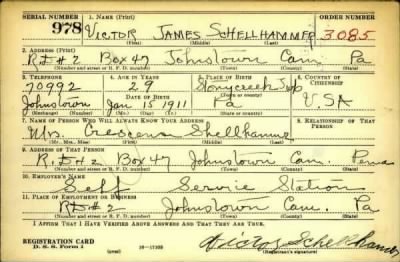 SERIAL NUMBER 1. NAME (Print) ORDER NUMBER
978 VICTOR JAMES SCHELLHAMMER 3085
(First) (Middle) (Last)
2. ADDRESS (Print)
R.D.#2 Box 47 Johnstown Cam. Pa
(Number and street or R. F. D. number) (Town) (County) (State)
3. TELEPHONE 4. AGE IN YEARS 5. PLACE OF BIRTH 6. COUNTRY OF CITIZENSHIP
70992 29 Stonycreek Twp
DATE OF BIRTH (Town or county)
Johnstown Jan 15 1911 Pa U.S.A
(Exchange) (Mo.) (Day) (Yr.) (State or country)
7. NAME OF PERSON WHO WILL ALWAYS KNOW YOUR ADDRESS 8. RELATIONSHIP OF THAT PERSON
Mrs. Crescens Shellhammer
(Mr., Mrs., Miss) (First) (Middle) (Last)
9. ADDRESS OF THAT PERSON
R.D#2 Box 47 Johnstown Cam. Penna
(Number and street or R. F. D. number) (Town) (County) (State)
10. EMPLOYER'S NAME
Self Service Station
11. PLACE OF EMPLOYMENT OR BUSINESS
RD#2 Johnstown Cam. Pa
(Number and street or R. F. D. number) (Town) (County) (State)
I AFFIRM THAT I HAVE VERIFIED ABOVE ANSWERS AND THAT THEY ARE TRUE.
REGISTRATION CARD Victor Schellhammer
D. S. S. Form 1 16—17105 (Registrant's signature)